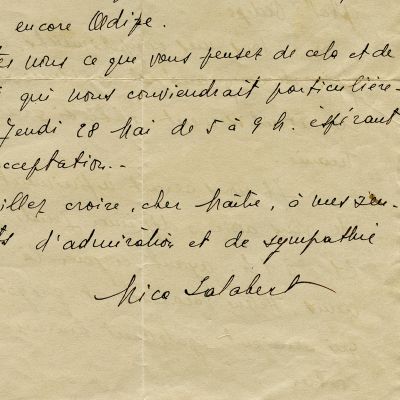 encore Œdipe.
nous ce que vous pensez de cela et de
qui nous conviendrait particulière-
Jeudi 28 Mai de 5 à 9 h. espérant
cceptation.-
illez croire, cher Maître, à mes sen-
ts d'admiration et de sympathie
Nico Salabert